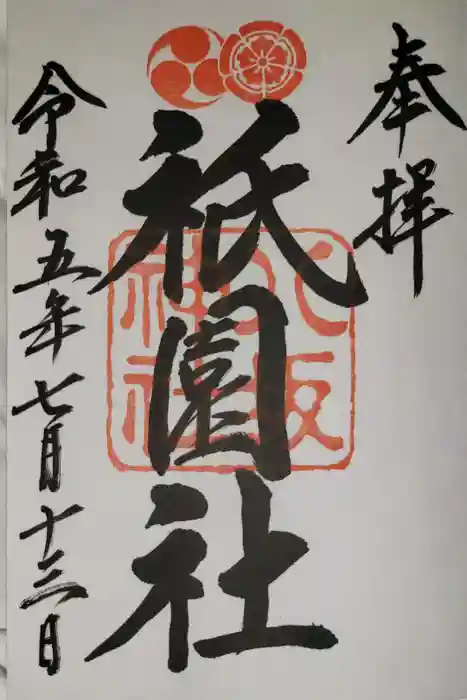 奉拝
八坂
神社
祇園社
令和五年七月十三日